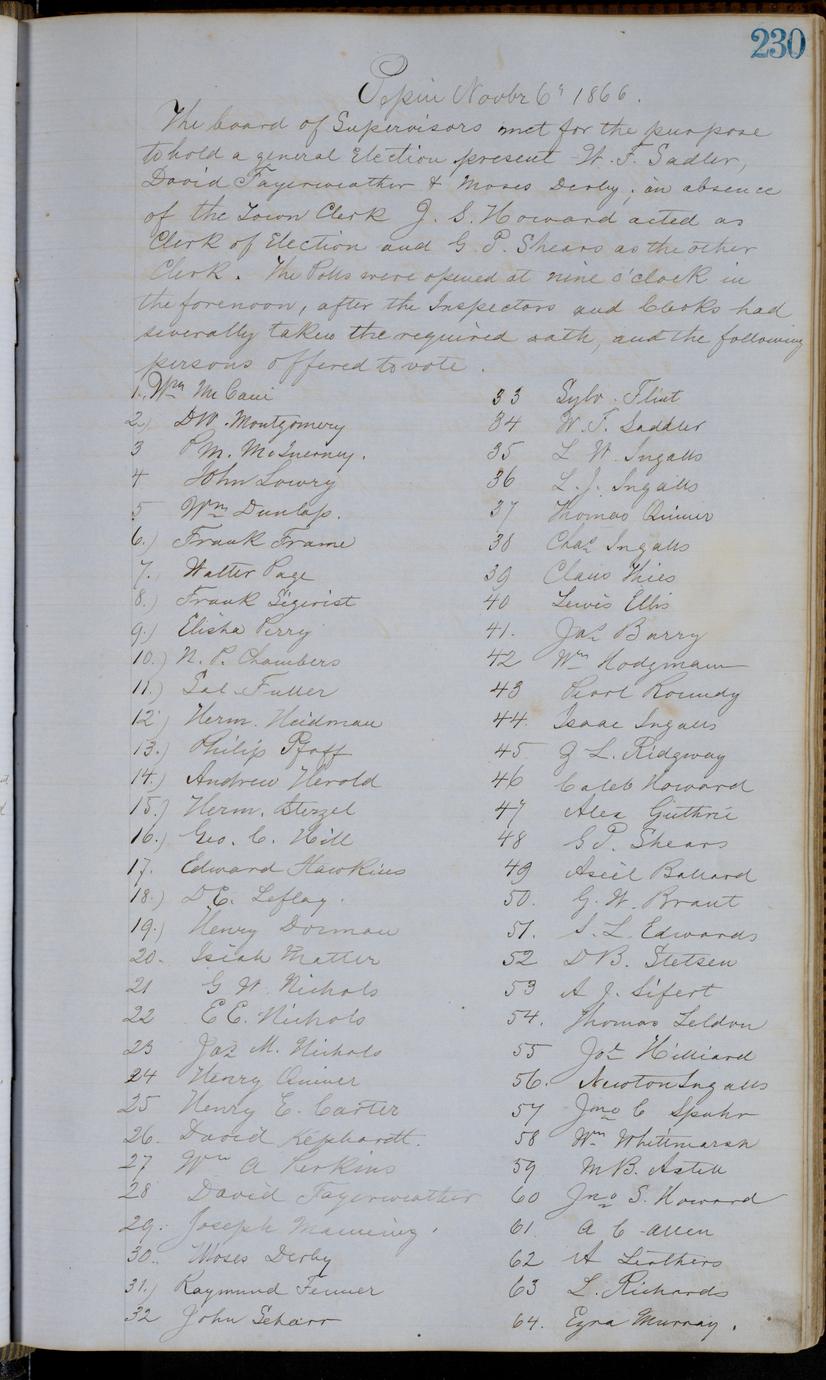 230
Pepin Novbr 6th 1866.
The board of Supervisors met for the purpose
to hold a general Election present W. F. Sadler,
David Fayerweather & Moses Derby; in absence
of the Town Clerk J. S. Howard acted as
Clerk of Election and G. P. Shears as the other
Clerk. The Polls were opened at nine o'clock in
the forenoon, after the Inspectors and Clerks had
severally taken the required oath, and the following
persons offered to vote.
1. Wm McCain
2.) DW. Montgomery
3 P M. McInerney.
4 John Lowry
5 Wm Dunlap.
6.) Frank Frame
7. Walter Page
8.) Frank Sigerist
9.) Elisha Perry
10.) N. P. Chambers
11.) Sal Fuller
12.) Herm. Heidman
13.) Philip Pfaff
14.) Andrew Herold
15.) Herm. Sterzel
16.) Geo. C. Hill
17. Edward Hawkins
18.) D C. Leflay.
19.) Henry Dorman
20. Isiah Matter
21 G W Nichols
22 E E. Nichols
23 Jas M. Nichols
24 Henry Quiner
25 Henry E. Carter
26. David Kephardt.
27 Wm A Perkins
28 David Fayerweather
29. Joseph Manning.
30. Moses Derby
31.) Raymund Fenner
32 John Scharr
33 Sylv. Flint
34 W. F. Saddler
35 L W. Ingalls
36 L. J. Ingalls
37 Thomas Quiner
38 Chas Ingalls
39 Claus Thies
40 Lewis Ellis
41. Jas Barry
42 Wm Hodgman
43 Pearl Roundy
44. Isaac Ingalls
45 J L. Ridgway
46 Caleb Howard
47 Alex Guthrie
48 G P. Shears
49 Aseil Ballard
50. G. W. Brant
51. S. L Edwards
52 D B. Stetsen
53 A J. Sifert
54. Thomas Seldon
55 Jos Hilliard
56. Newton Ingalls
57 Jno C Spuhr
58 Wm Whitmarsh
59 M B. Axtell
60 Jno S. Howard
61. A C Allen
62 A Leathers
63 L. Richards
64. Ezra Murray.